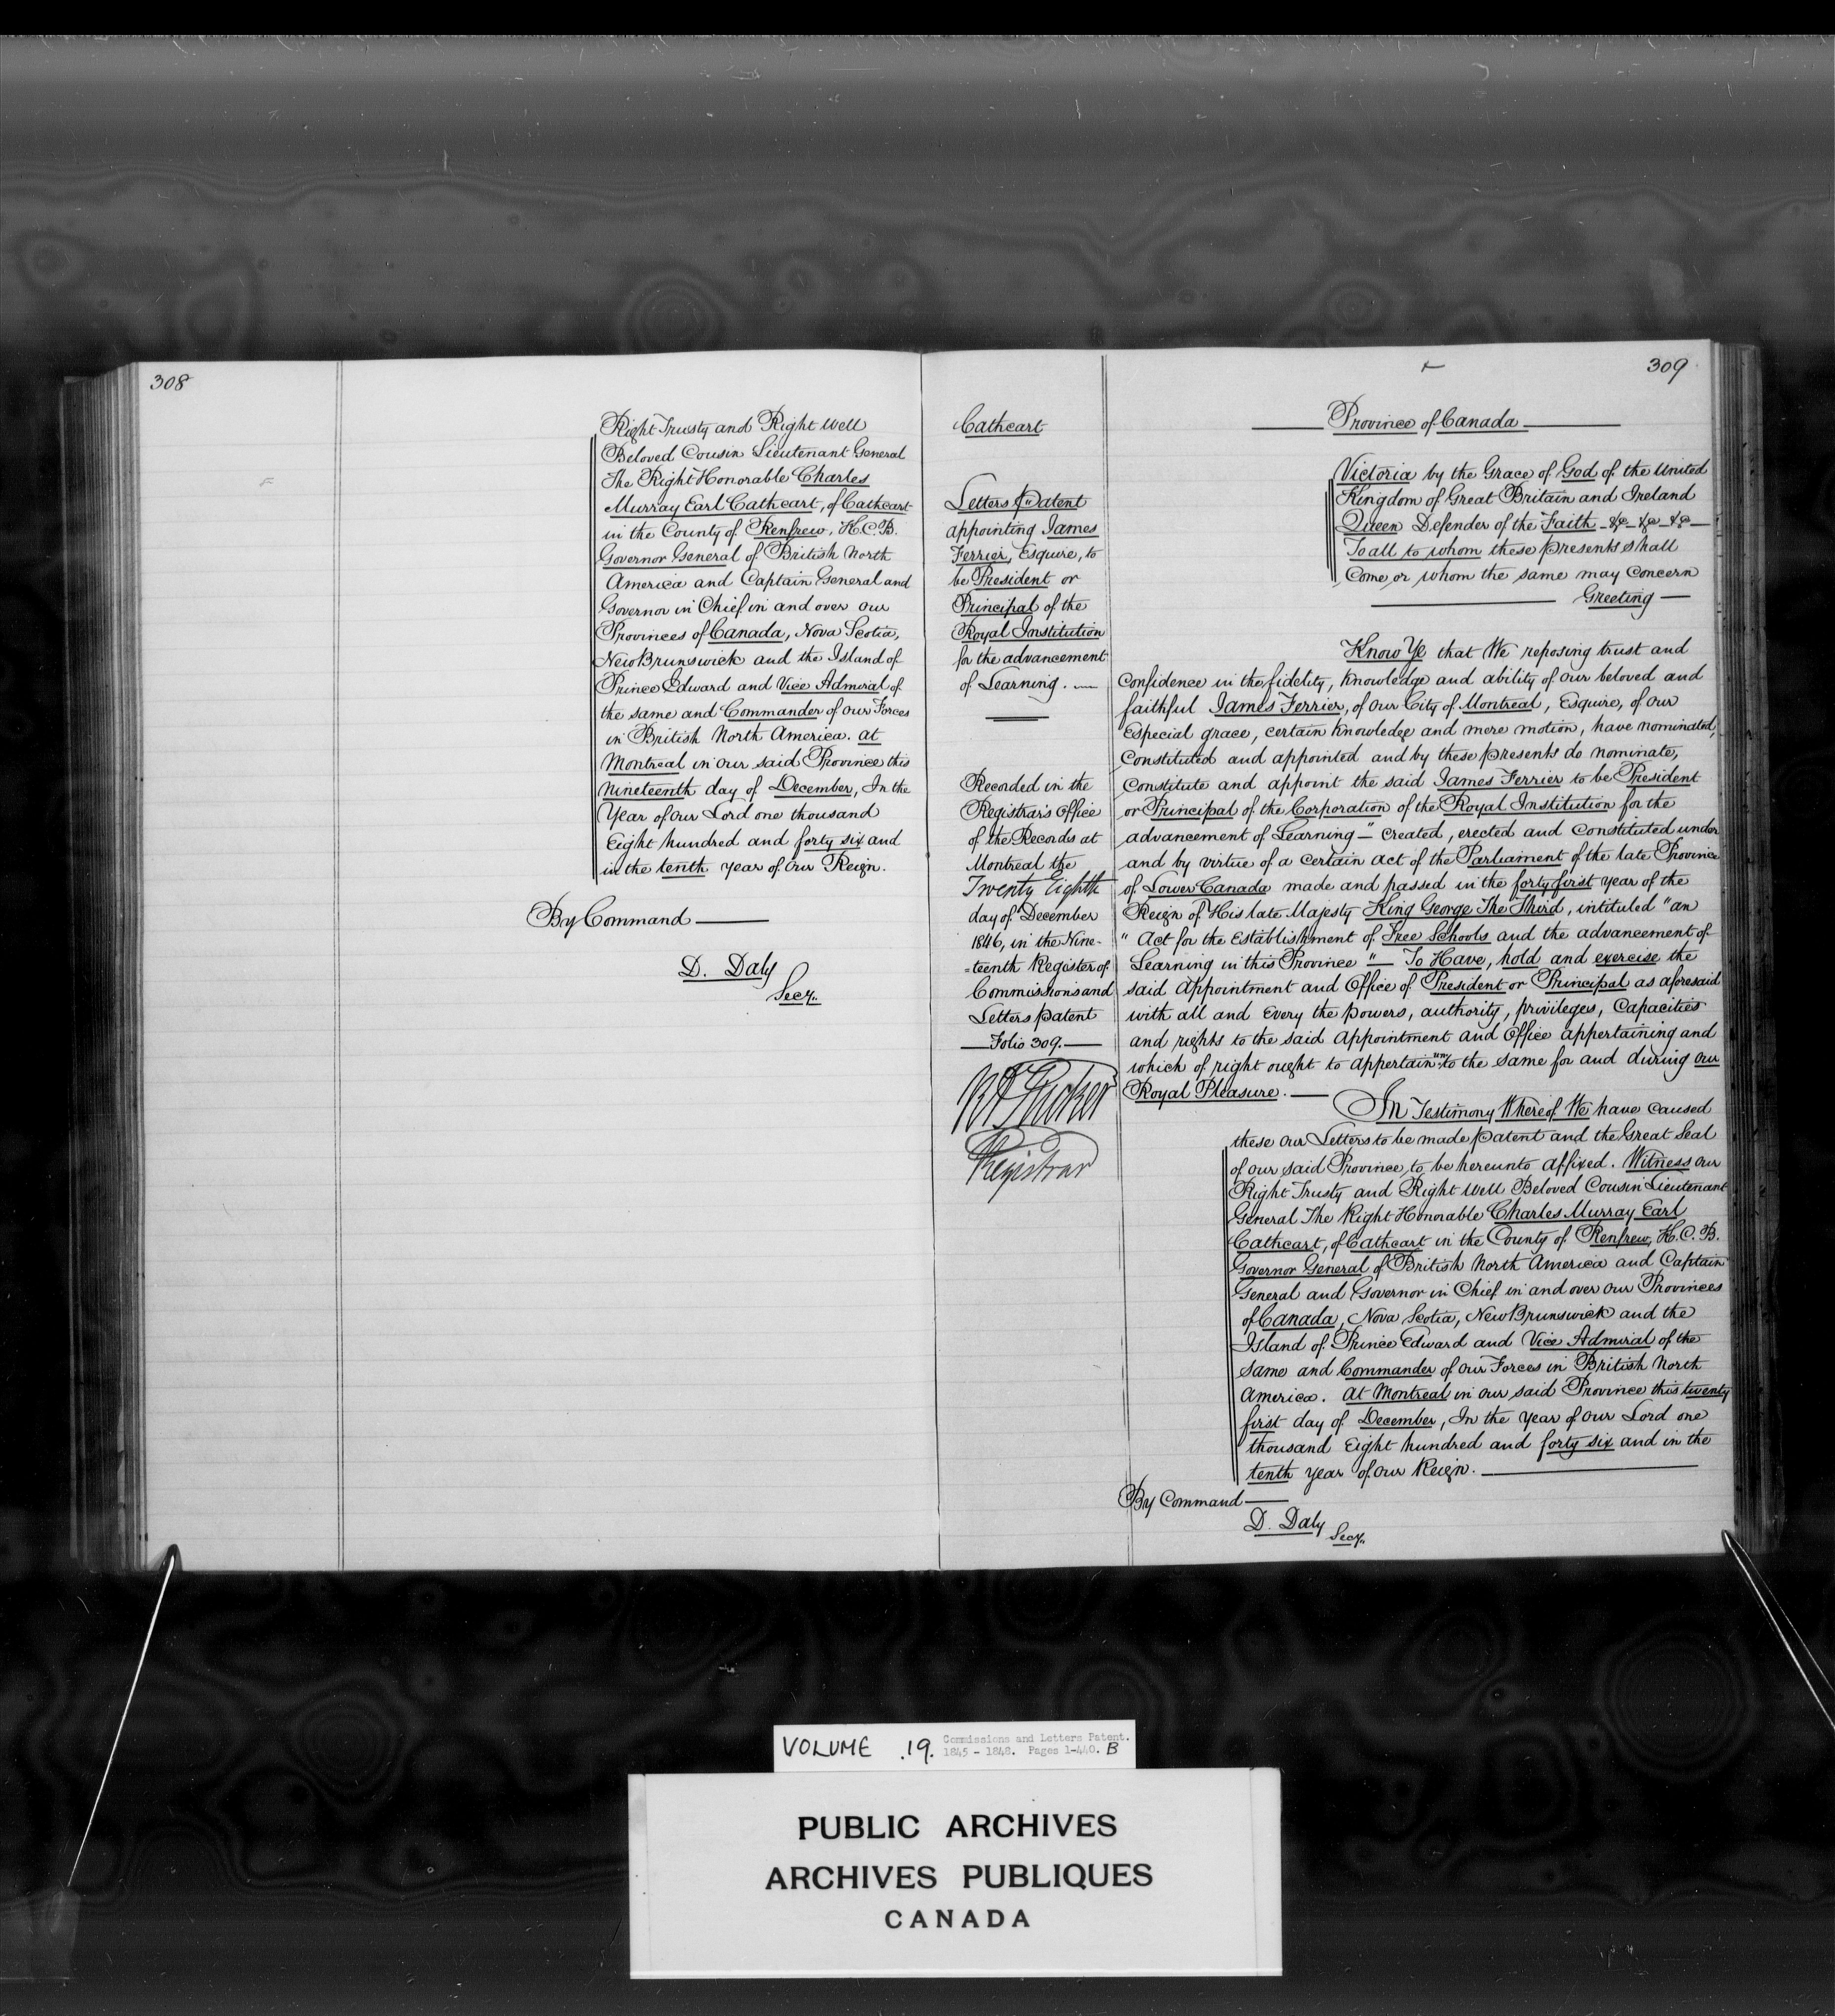 308
Right Trusty and Right Well
Beloved Cousin Lieutenant General
The Right Honorable Charles
Murray Earl Cathcart, of Cathcart
in the County of Renfrew, K.C.B.
Governor General of British North
America and Captain General and
Governor in Chief in and over our
Provinces of Canada, Nova Scotia,
New Brunswick and the Island of
Prince Edward and Vice Admiral of
the same and Commander of our Forces
in British North America. at
Montreal in our said Province this
nineteenth day of December, In the
Year of our Lord one thousand
Eight hundred and forty six and
in the tenth year of Our Reign.
By Command
D. Daly
Secy.
Cathcart
Letters Patent
appointing James
Ferrier, Esquire, to
be President or
Principal of the
Royal Institution
for the advancement
of Learning.
Recorded in the
Registrar's Office
of the Records at
Montreal the
Twenty Eighth
day of December
1846, in the Nine-
=teenth Register of
Commissions and
Letters patent
Folio 309.
R A Tucker
Registrar
309
Province of Canada
Victoria by the Grace of God of the United
Kingdom of Great Britain and Ireland
Queen Defender of the Faith - &c - &c - &c -
To all to whom these presents shall
Come or whom the same may concern
Greeting
Know Ye that We reposing trust and
Confidence in the fidelity, knowledge and ability of our beloved and
faithful James Ferrier, of our City of Montreal, Esquire, of our
Especial grace, certain knowledge and mere motion, have nominated,
Constituted and appointed and by these presents do nominate,
Constitute and appoint the said James Ferrier to be President
or Principal of the Corporation of the Royal Institution for the
advancement of Learning" - created, erected and Constituted under
and by virtue of a certain act of the Parliament of the late Province
of Lower Canada made and passed in the forty first year of the
Reign of His late Majesty King George The Third, intituled "an
" Act for the Establishment of Free Schools and the advancement of
Learning in this Province" - To Have, hold and exercise the
said Appointment and Office of President or Principal as aforesaid
with all and Every the powers, authority, privileges, Capacities
and rights to the said Appointment and Office appertaining and
which of right ought to appertain unto the same for and during our
Royal Pleasure.
In Testimony Whereof We have caused
these our Letters to be made patent and the Great Seal
of our said Province to be hereunto affixed. Witness our
Right Trusty and Right Well Beloved Cousin Lieutenant
General The Right Honorable Charles Murray Earl
Cathcart, of Cathcart in the County of Renfrew, K.C.B.
Governor General of British North America and Captain
General and Governor in Chief in and over our Provinces
of Canada, Nova Scotia, New Brunswick and the
Island of Prince Edward and Vice Admiral of the
same and Commander of our Forces in British North
America. At Montreal in our said Province this twenty
first day of December, In the Year of our Lord one
thousand Eight hundred and forty six and in the
tenth year of our Reign.
By Command
D. Daly
Secy.
VOLUME .19. Commissions and Letters Patent.
1845 - 1848. Pages 1-440. B
PUBLIC ARCHIVES
ARCHIVES PUBLIQUES
CANADA